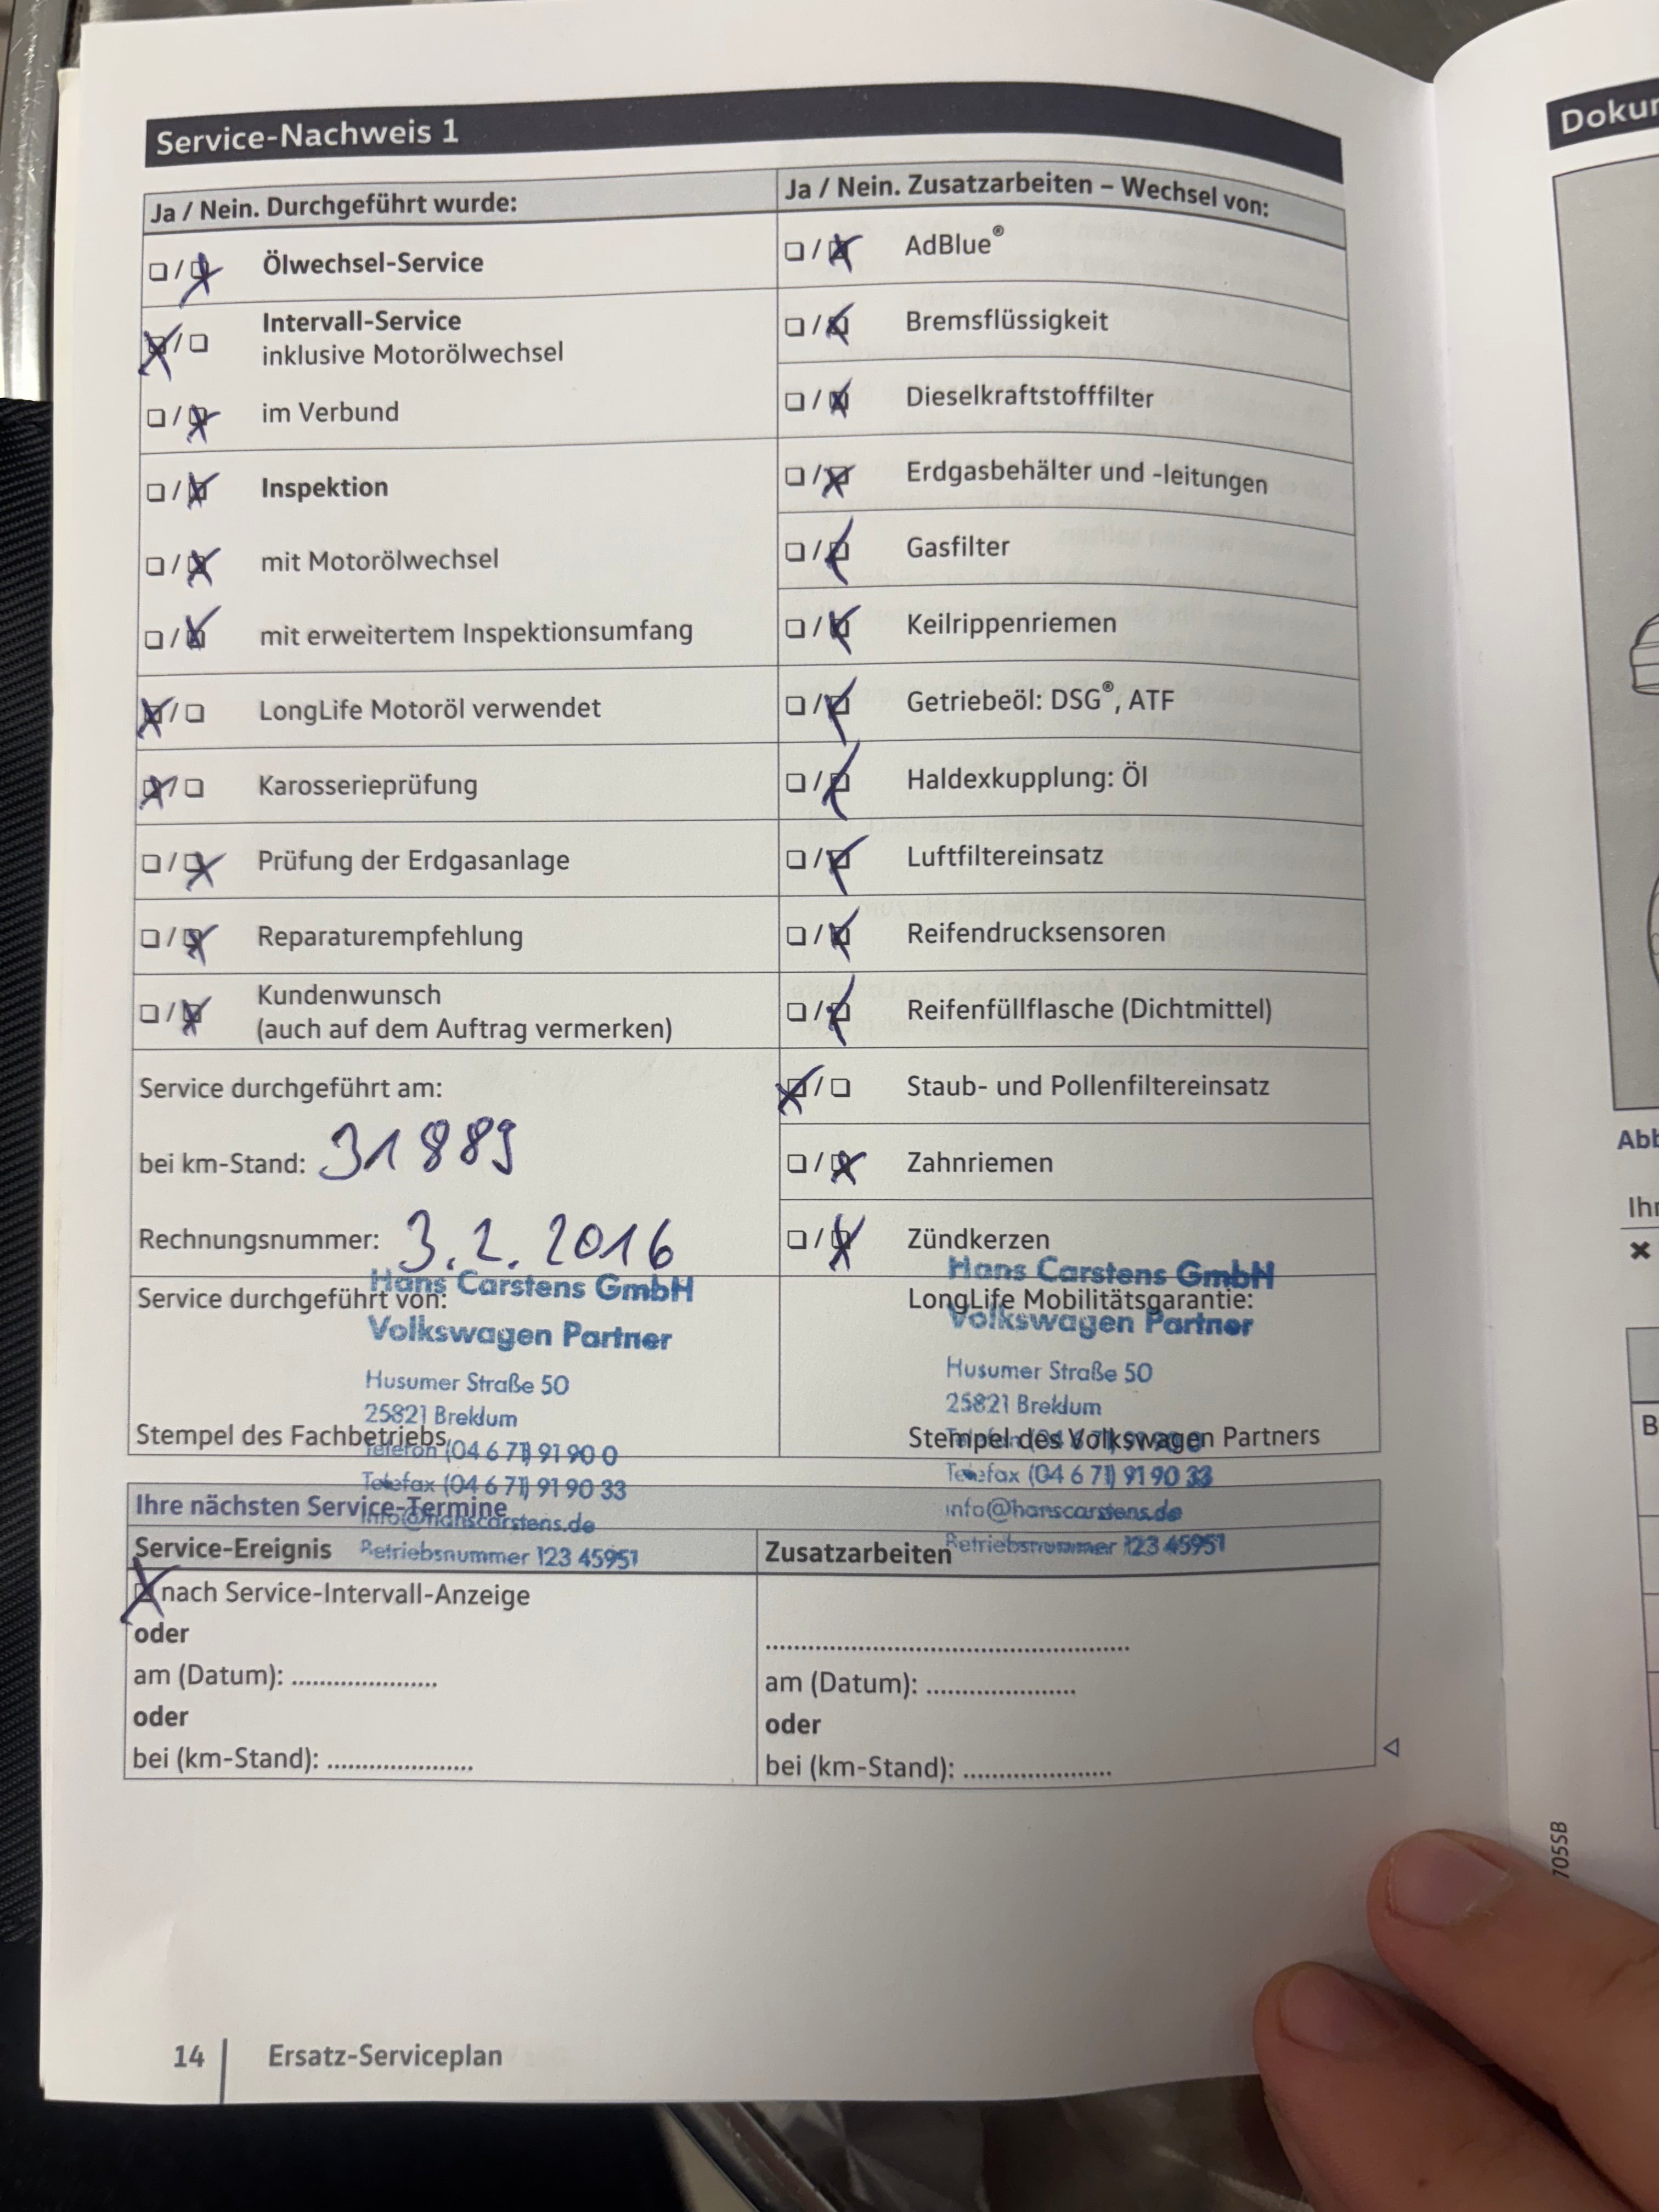 Service-Nachweis 1
Ja / Nein. Durchgeführt wurde:
Ölwechsel-Service
Intervall-Service
inklusive Motorölwechsel
im Verbund
Inspektion
mit Motorölwechsel
mit erweitertem Inspektionsumfang
LongLife Motoröl verwendet
Karosserieprüfung
Prüfung der Erdgasanlage
Reparaturempfehlung
Kundenwunsch
(auch auf dem Auftrag vermerken)
Service durchgeführt am:
bei km-Stand: 31889
Rechnungsnummer: 3.2.2016
Service durchgeführt von:
Hans Carstens GmbH
Volkswagen Partner
Husumer Straße 50
25821 Breklum
Telefon (04 6 71) 91 90 0
Telefax (04 6 71) 91 90 33
info@hanscarstens.de
Betriebsnummer 123 45951
Stempel des Fachbetriebs
Ja / Nein. Zusatzarbeiten – Wechsel von:
AdBlue®
Bremsflüssigkeit
Dieselkraftstofffilter
Erdgasbehälter und -leitungen
Gasfilter
Keilrippenriemen
Getriebeöl: DSG®, ATF
Haldexkupplung: Öl
Luftfiltereinsatz
Reifendrucksensoren
Reifenfüllflasche (Dichtmittel)
Staub- und Pollenfiltereinsatz
Zahnriemen
Zündkerzen
LongLife Mobilitätsgarantie:
Hans Carstens GmbH
Volkswagen Partner
Husumer Straße 50
25821 Breklum
Telefon (04 6 71) 91 90 0
Telefax (04 6 71) 91 90 33
info@hanscarstens.de
Betriebsnummer 123 45951
Stempel des Volkswagen Partners
Ihre nächsten Service-Termine
Service-Ereignis
nach Service-Intervall-Anzeige
oder
am (Datum): .....................
oder
bei (km-Stand): .....................
Zusatzarbeiten
.....................................................
am (Datum): .....................
oder
bei (km-Stand): .....................
14
Ersatz-Serviceplan
Dokum
Abb
Ihr
B
705SB